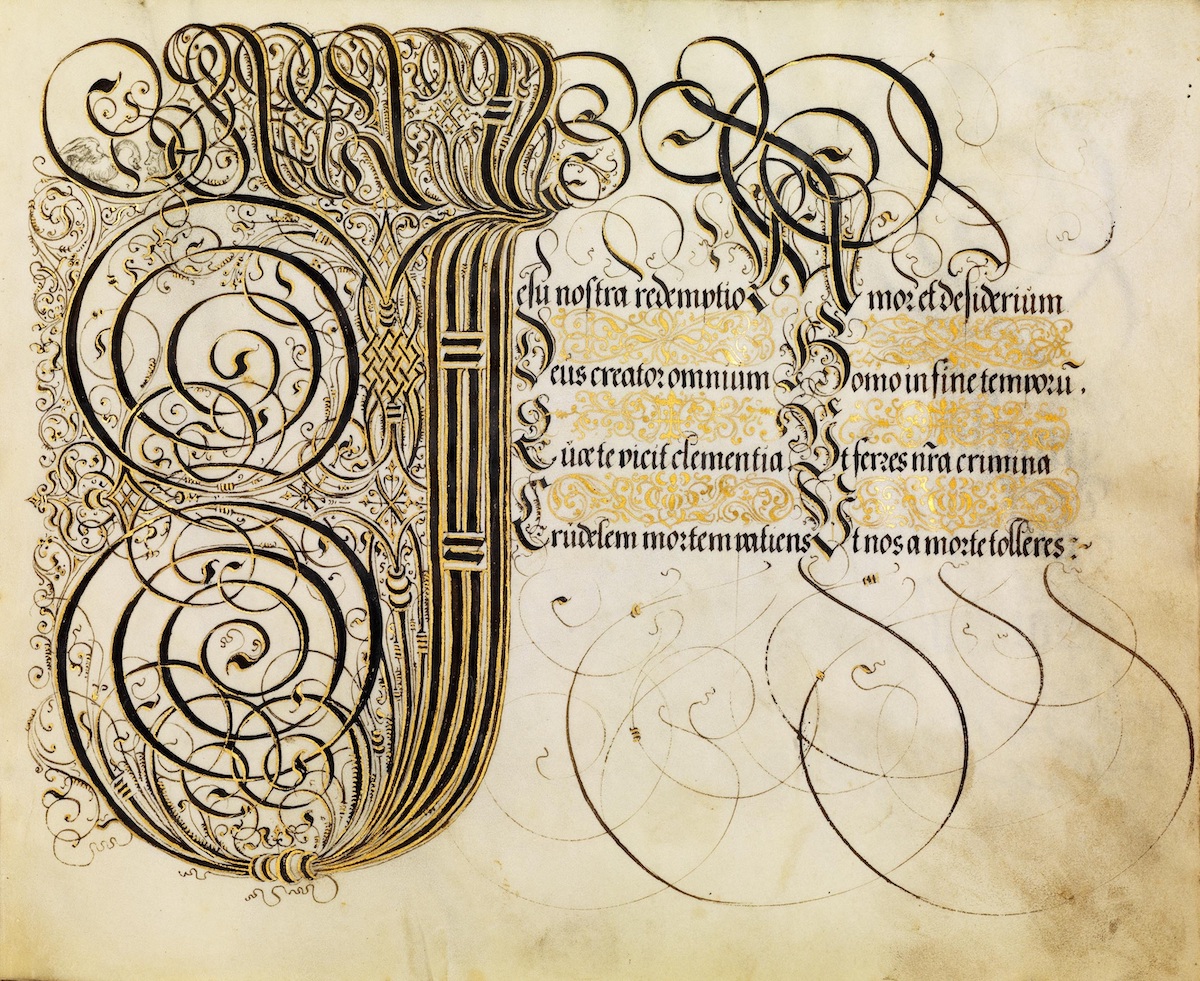 Jesu nostra redemptio Amor et desiderium
Deus creator omnium Homo in fine temporū.
Quæ te vicit clementia. Ut ferres nr̃a crimina
Crudelem mortem patiens Ut nos a morte tolleres:~